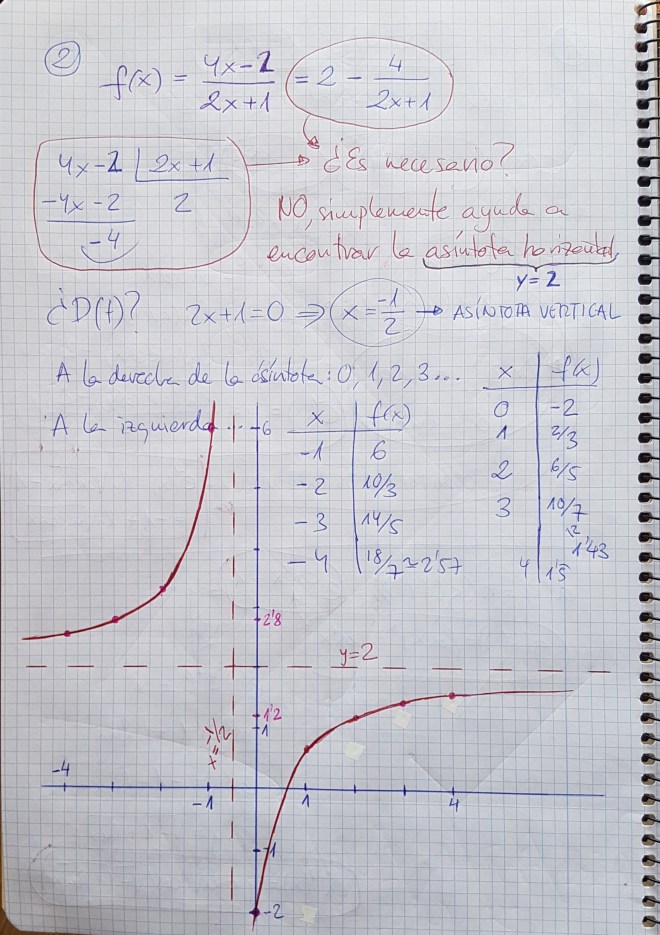 2 f(x) = (4x-2)/(2x+1) = 2 - 4/(2x+1)
4x-2 | 2x+1
-4x-2 2
-4
¿Es necesario?
NO, simplemente ayuda a
encontrar la asíntota horizontal,
y=2
¿D(f)? 2x+1=0 ⇒ x = -1/2 → ASÍNTOTA VERTICAL
A la derecha de la asíntota: 0, 1, 2, 3...
x f(x)
0 -2
1 2/3
2 6/5
3 10/7
≈
1'43
4 1'5
A la izquierda...
x f(x)
-1 6
-2 10/3
-3 14/5
-4 18/7 ≈ 2'57
6
2'8
y=2
1'2
1
x=-1/2
-4
-1
1
4
-1
-2